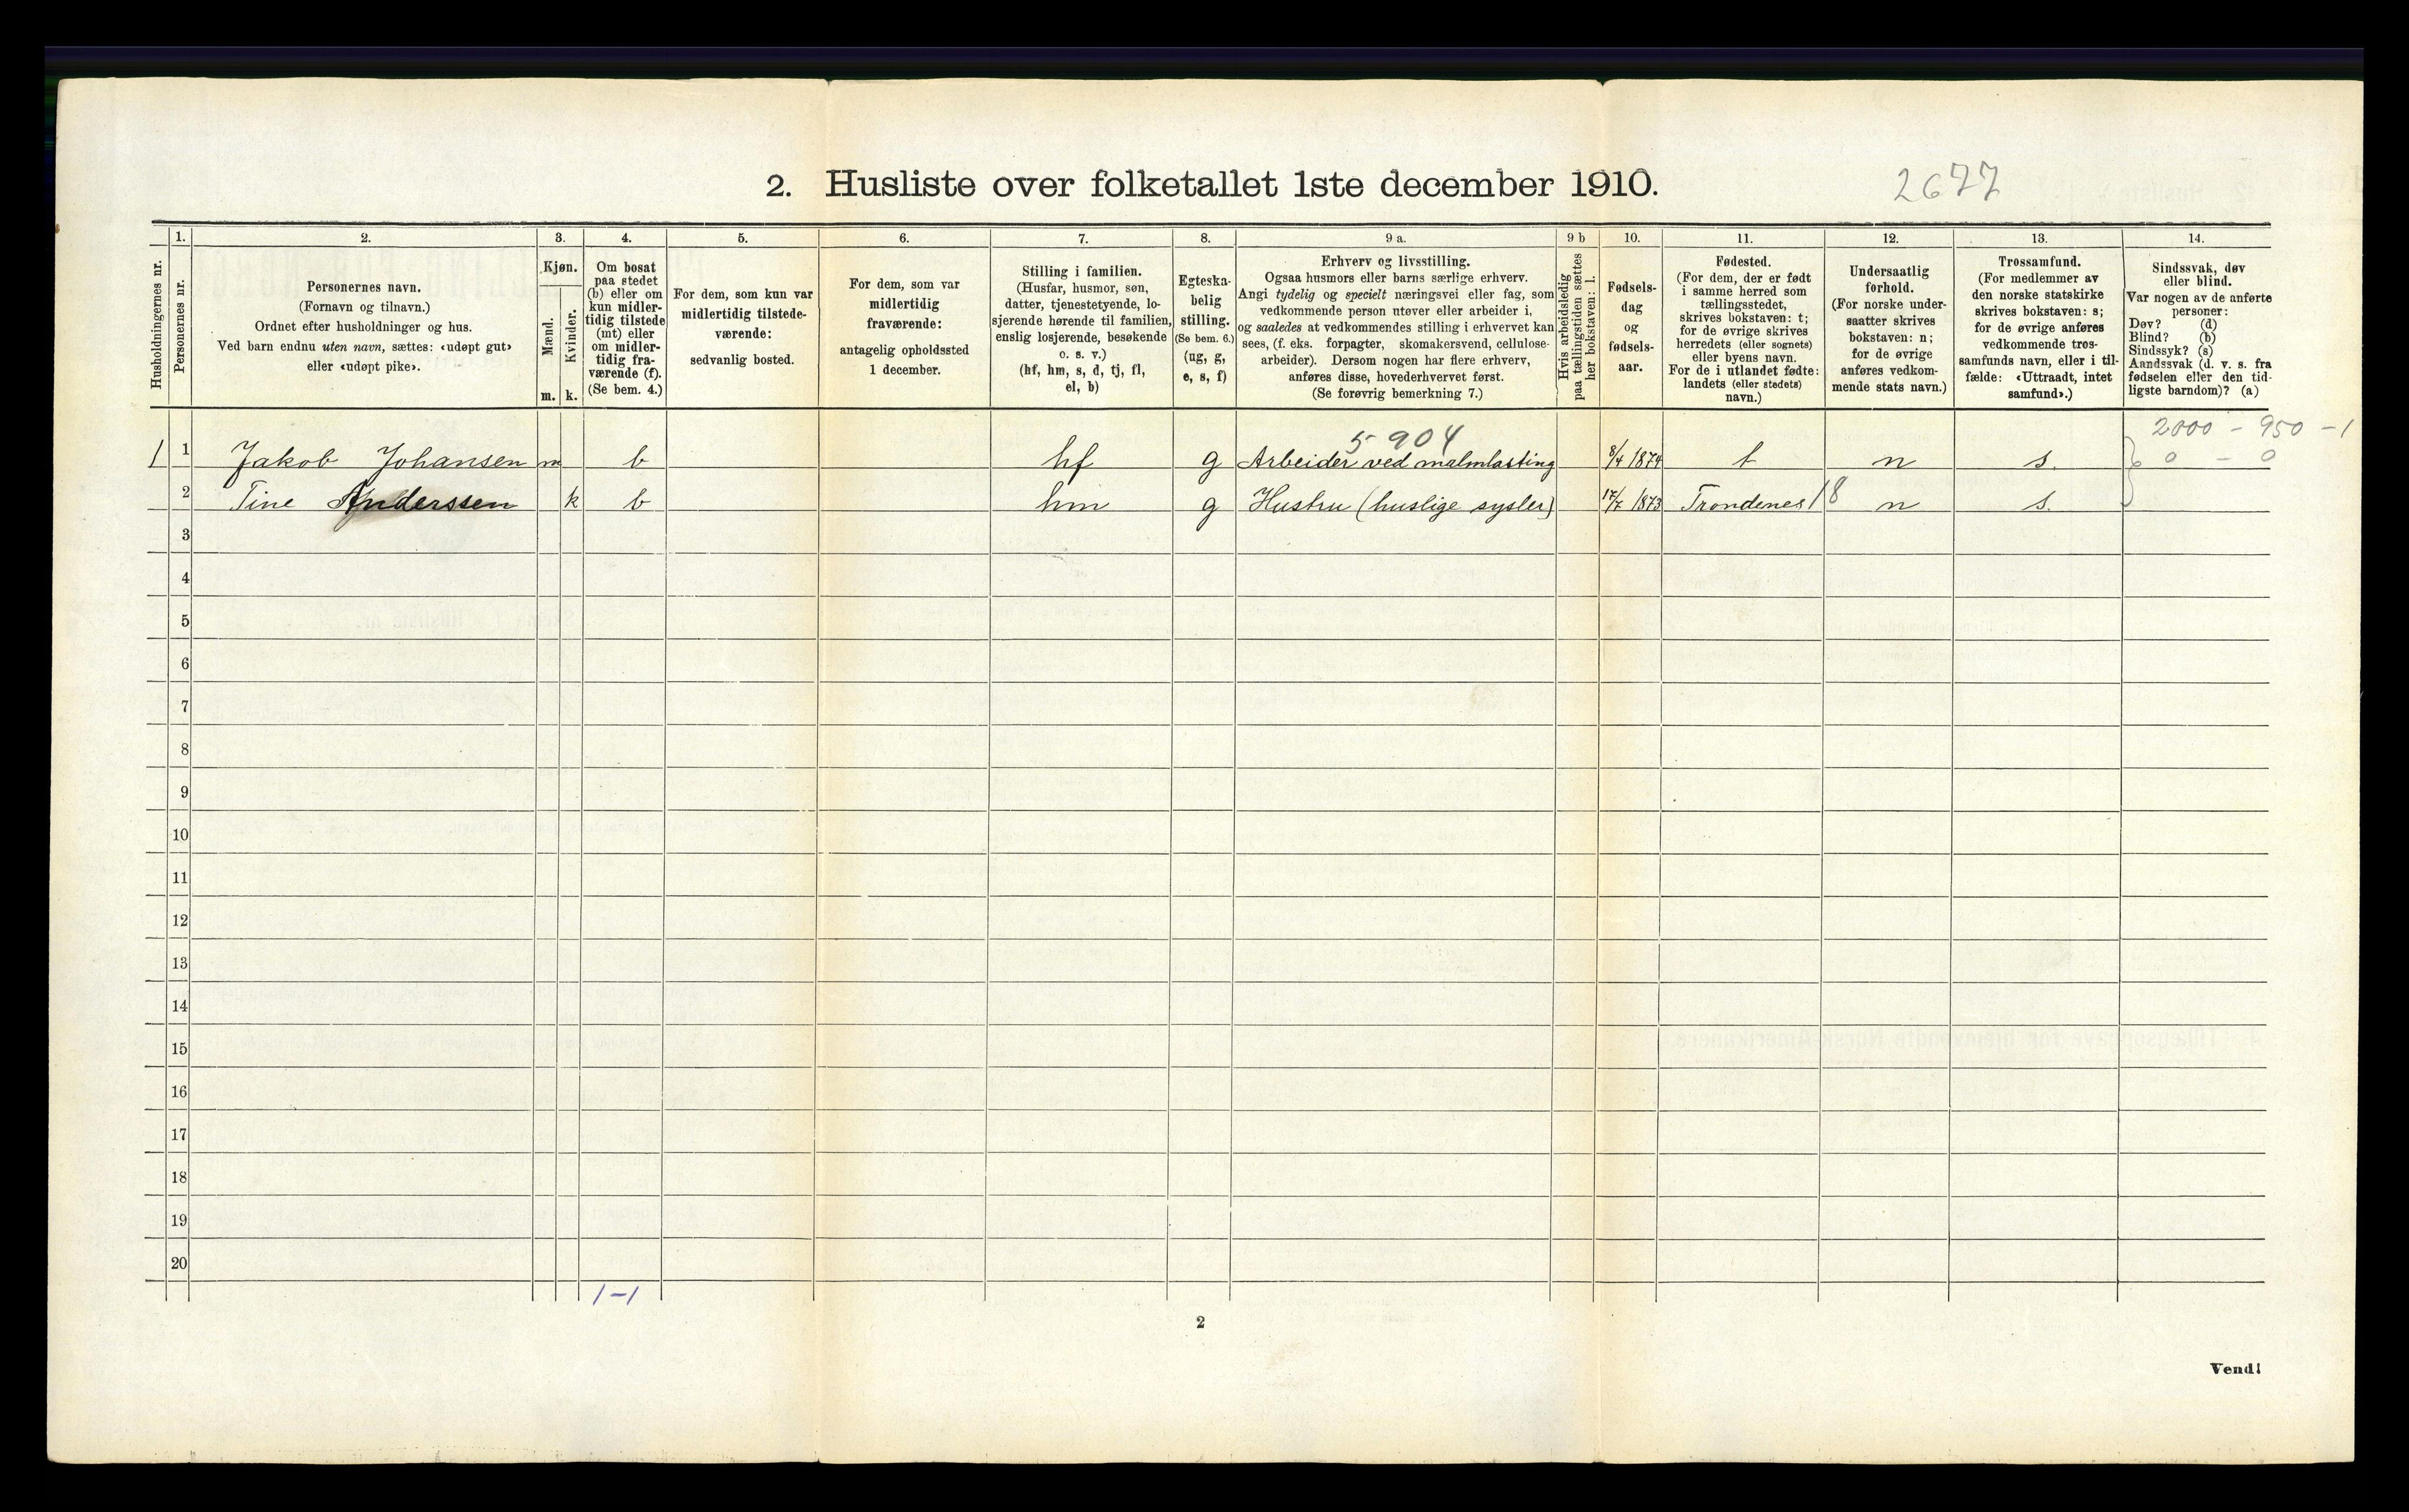 2. Husliste over folketallet 1ste december 1910.
2677
Husholdningernes nr.
1.
Personernes nr.
2.
Personernes navn.
(Fornavn og tilnavn.)
Ordnet efter husholdninger og hus.
Ved barn endnu uten navn, sættes: «udøpt gut»
eller «udøpt pike».
3.
Kjøn.
Mænd.
Kvinder.
m. k.
4.
Om bosat
paa stedet
(b) eller om
kun midler-
tidig tilstede
(mt) eller
om midler-
tidig fra-
værende (f).
(Se bem. 4.)
5.
For dem, som kun var
midlertidig tilstede-
værende:
om
sedvanlig bosted.
6.
For dem, som var
midlertidig
fraværende:
antagelig opholdssted
1 december.
7.
Stilling i familien.
(Husfar, husmor, søn,
datter, tjenestetyende, lo-
sjerende hørende til familien,
enslig losjerende, besøkende
o. s. v.)
(hf, hm, s, d, tj, fl,
el, b)
8.
Egteska-
belig
stilling.
(Se bem. 6.)
(ug, g,
e, s, f)
9 a.
Erhverv og livsstilling.
Ogsaa husmors eller barns særlige erhverv.
Angi tydelig og specielt næringsvei eller fag, som
vedkommende person utøver eller arbeider i,
og saaledes at vedkommendes stilling i erhvervet kan
sees, (f. eks. forpagter, skomakersvend, cellulose-
arbeider). Dersom nogen har flere erhverv,
anføres disse, hovederhvervet først.
(Se forøvrig bemerkning 7.)
9 b
Hvis arbeidsledig
paa tællingstiden sættes
her bokstaven: l.
10.
Fødsels-
dag
og
fødsels-
aar.
11.
Fødested.
(For dem, der er født
i samme herred som
tællingsstedet,
skrives bokstaven: t;
for de øvrige skrives
herredets (eller sognets)
eller byens navn.
For de i utlandet fødte:
landets (eller stedets)
navn.)
12.
Undersaatlig
forhold.
(For norske under-
saatter skrives
bokstaven: n;
for de øvrige
anføres vedkom-
mende stats navn.)
13.
Trossamfund.
(For medlemmer av
den norske statskirke
skrives bokstaven: s;
for de øvrige anføres
vedkommende tros-
samfunds navn, eller i til-
fælde: «Uttraadt, intet
samfund».)
14.
Sindssvak, døv
eller blind.
Var nogen av de anførte
personer:
Døv? (d)
Blind? (b)
Sindssyk? (s)
Aandssvak (d. v. s. fra
fødselen eller den tid-
ligste barndom)? (a)
5904
2000 - 950 - 1
1 1 Jakob Johansen m b hf g Arbeider ved malmlasting 8/4 1874 t n s. 0 - 0
2 Tine Anderssen k b hm g Hustru (huslige sysler) 17/7 1873 Trondenes 18 n s.
3
4
5
6
7
8
9
10
11
12
13
14
15
16
17
18
19
20
1-1
2
Vend!